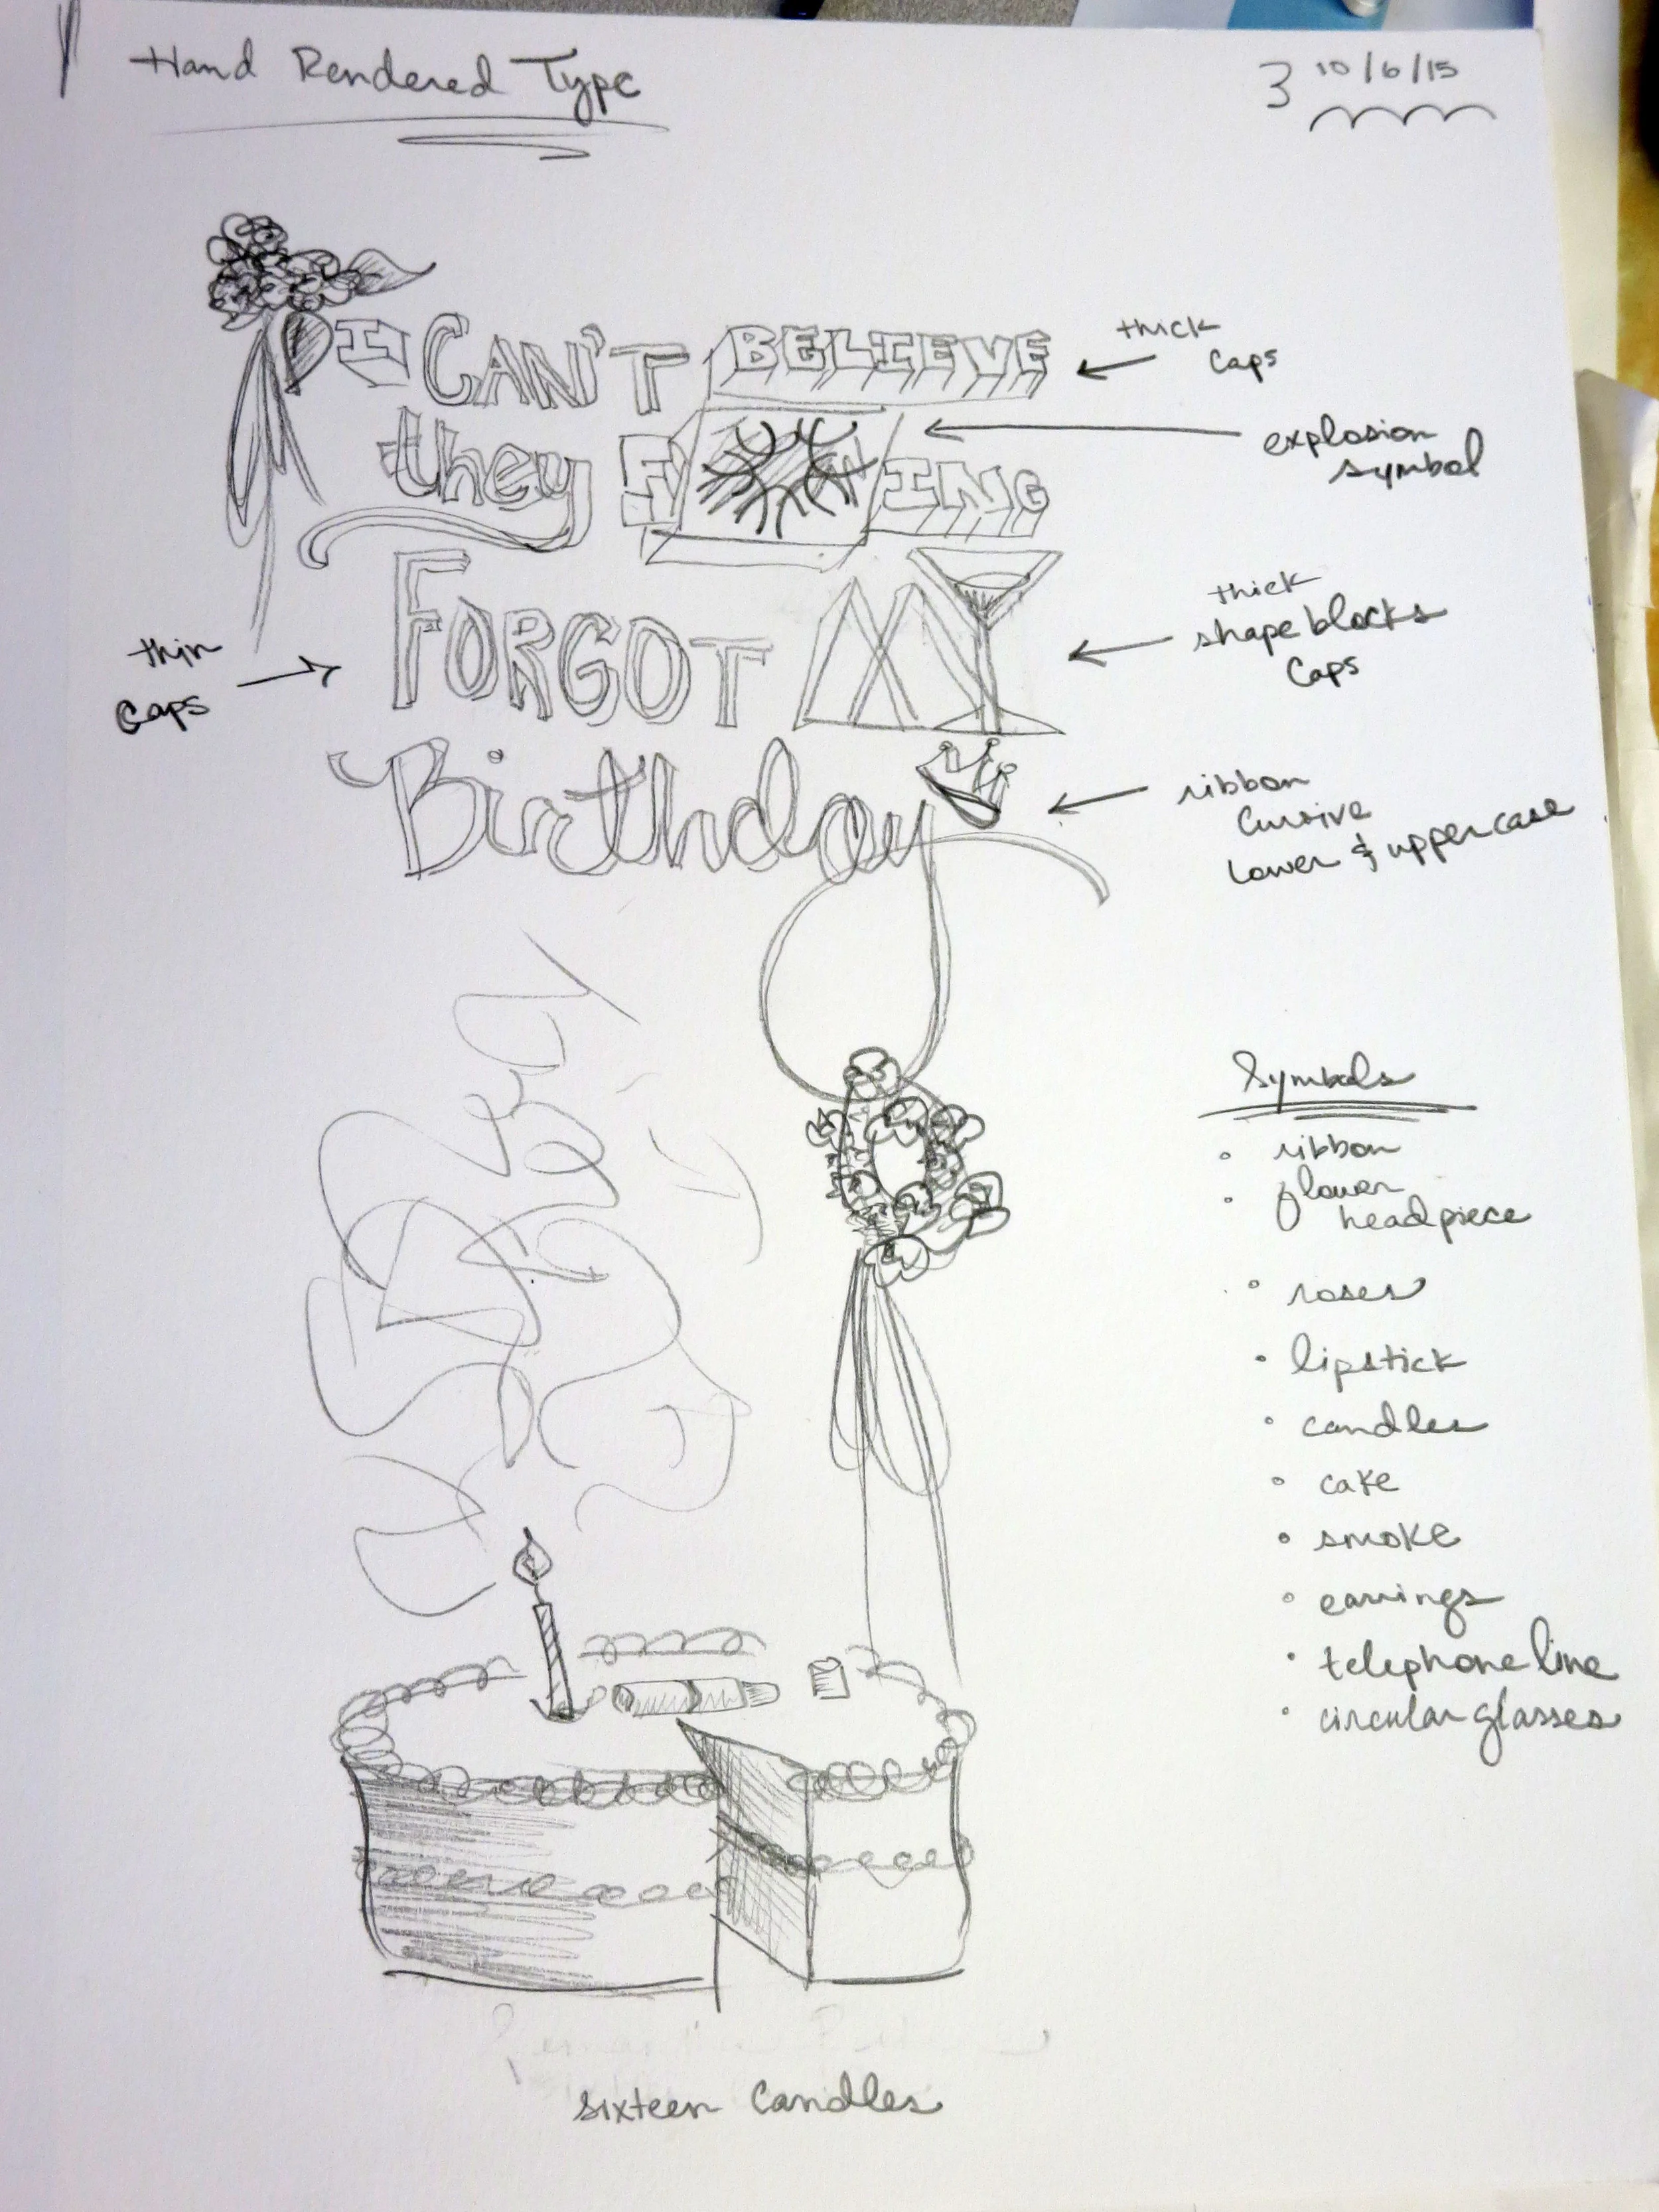 Hand Rendered Type
3 10/6/15
I CAN'T BELIEVE
thick
Caps
they F ING
explosion
symbol
FORGOT MY
thin
Caps
thick
shape blocks
Caps
Birthday
ribbon
Cursive
Lower & uppercase
Symbols
• ribbon
• flower
headpiece
• roses
• lipstick
• candles
• cake
• smoke
• earrings
• telephone line
• circular glasses
sixteen Candles